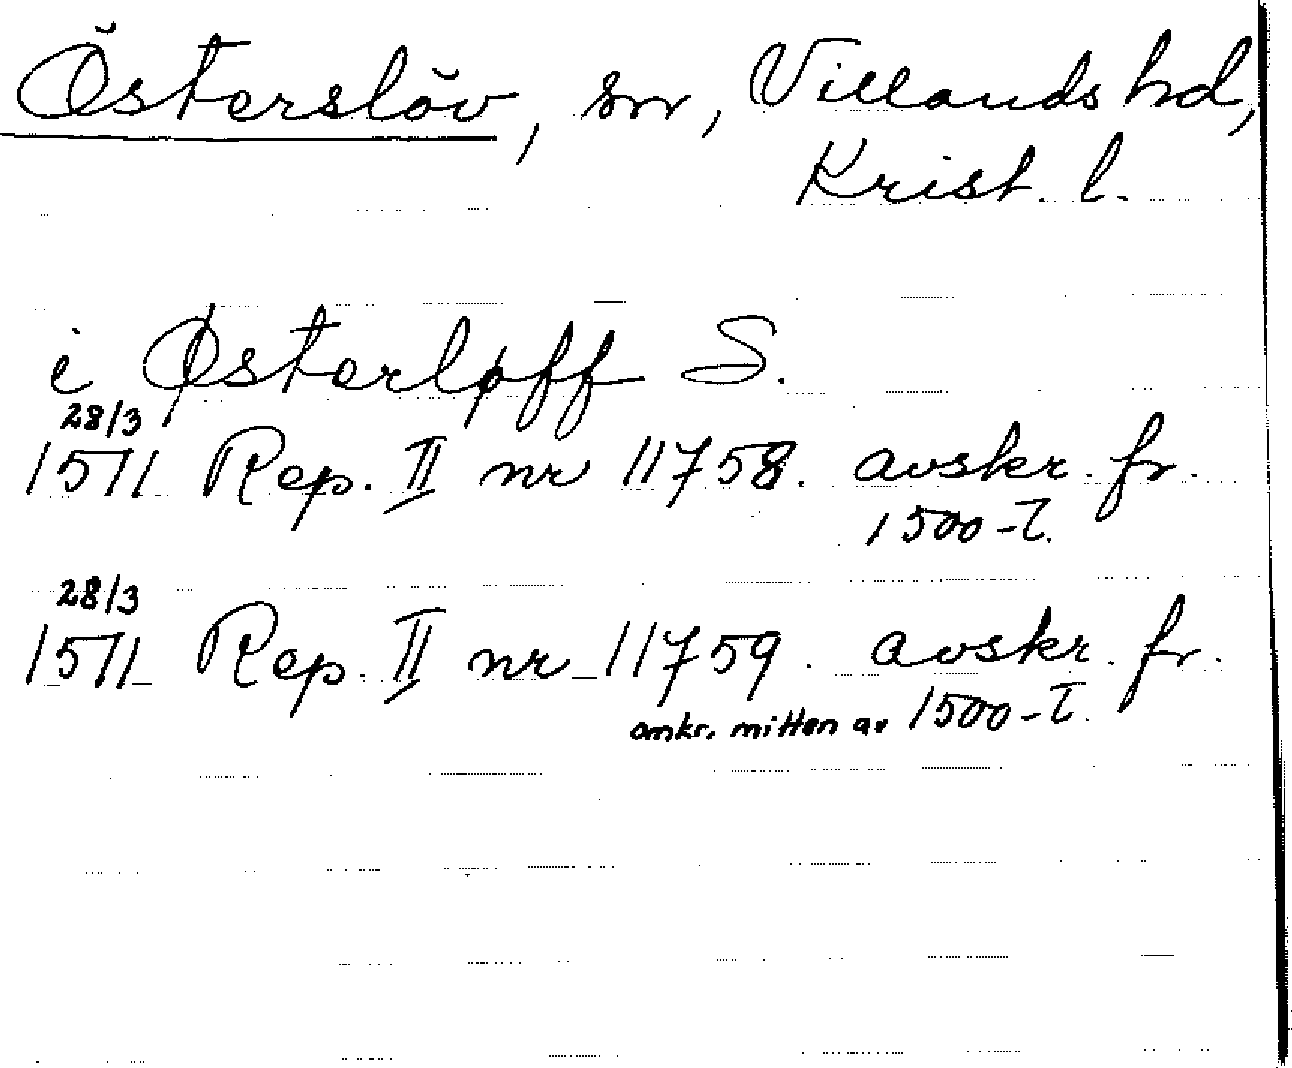 Österslöv, sn, Villands hd,
Krist. l.
i Østerløff S.
28/3
1511 Rep. II nr 11758. avskr. fr.
1500-T.
28/3
1511 Rep. II nr 11759. avskr. fr.
omkr. mitten av 1500-T.